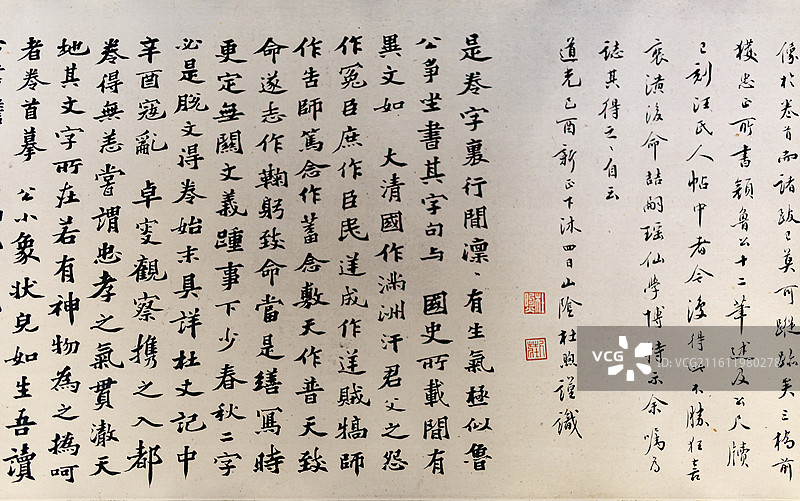 像於卷首而諸跋已莫可蹤跡矣三橋前
獲忠正所書額魯公十二筆述及公尺牘
已刻汪氏人帖中者今復得此不勝狂喜
裒潢後命喆嗣瑶仙學博持示余屬為
誌其得之之自云
道光己酉新正下沐四日山陰杜煦謹識
是卷字裏行間凛凛有生氣極似魯
公爭坐書其字句与國史所載間有
異文如 大清國作滿洲汗君父之怨
作冤臣庶作臣民逆成作逆賊犒師
作告師篤念作蓄念敷天作普天致
命遂志作鞠躬致命當是繕寫時
更定無關文義踵事下少春秋二字
必是脫文得卷始末具詳杜丈記中
辛酉寇亂 卓斐觀察携之入都
卷得無恙嘗謂忠孝之氣貫澈天
地其文字所在若有神物為之撝呵
者卷首摹 公小象狀皃如生吾讀
VCG
VCG.COM
ID:VCG311611980278